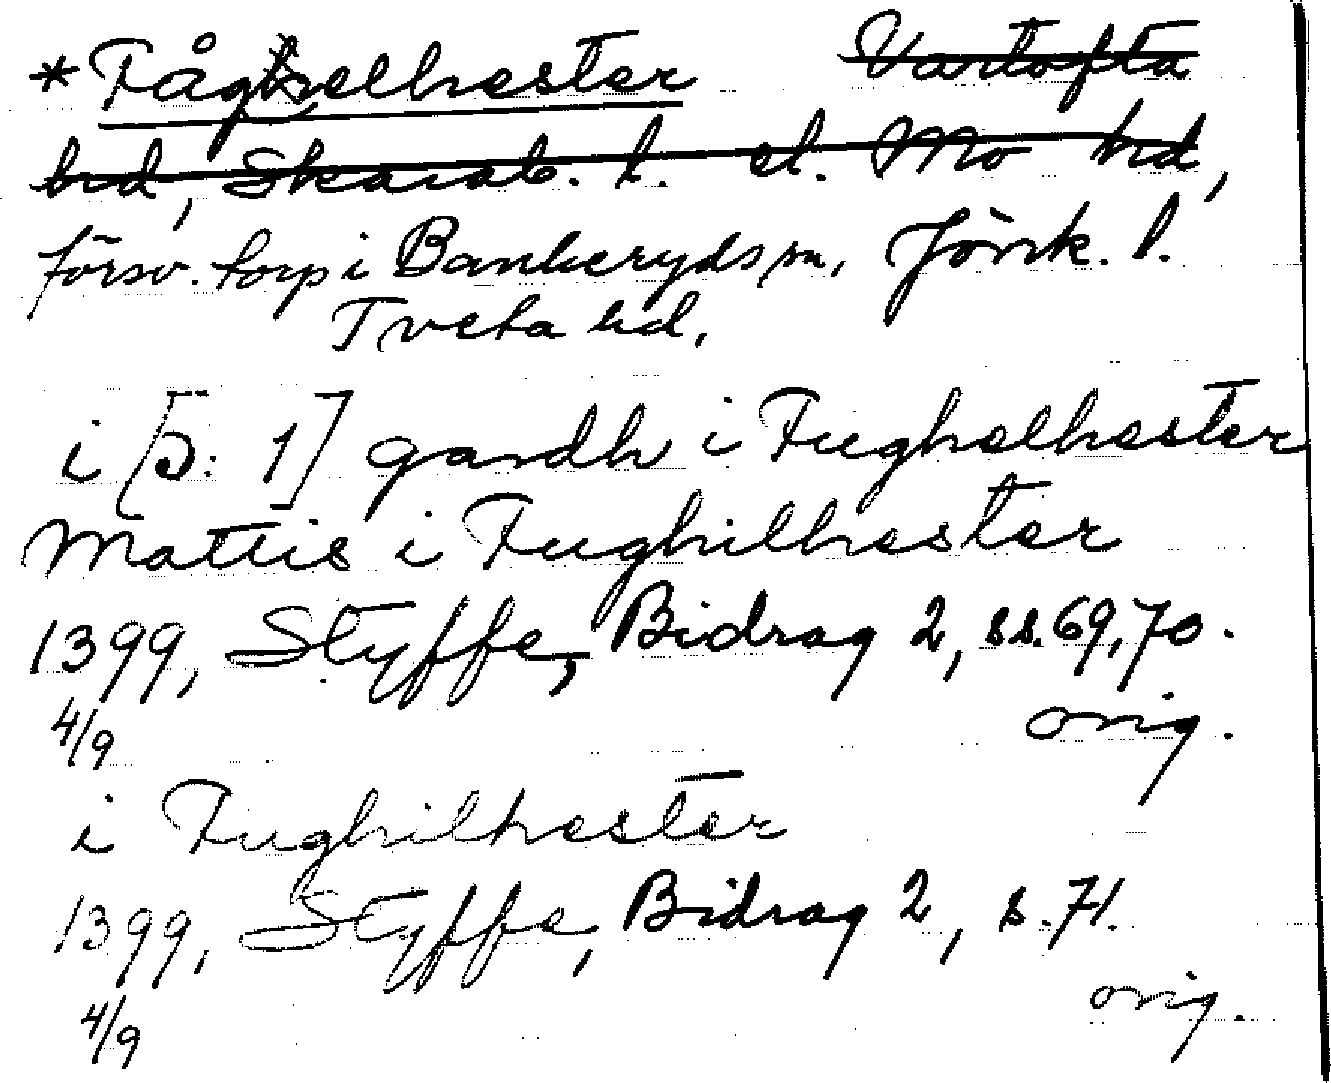 *Fåghelhester Vartofta
hd, Skarab. l. el. Mo hd,
försv. torp i Bankeryds sn, Jönk. l.
Tveta hd.
i [ɔ: 1] gardh i Fughelhester
Mattis i Fughilhester
1399, Styffe, Bidrag 2, ss. 69, 70.
4/9 orig.
i Fughilhester
1399, Styffe, Bidrag 2, s. 71.
4/9 orig.